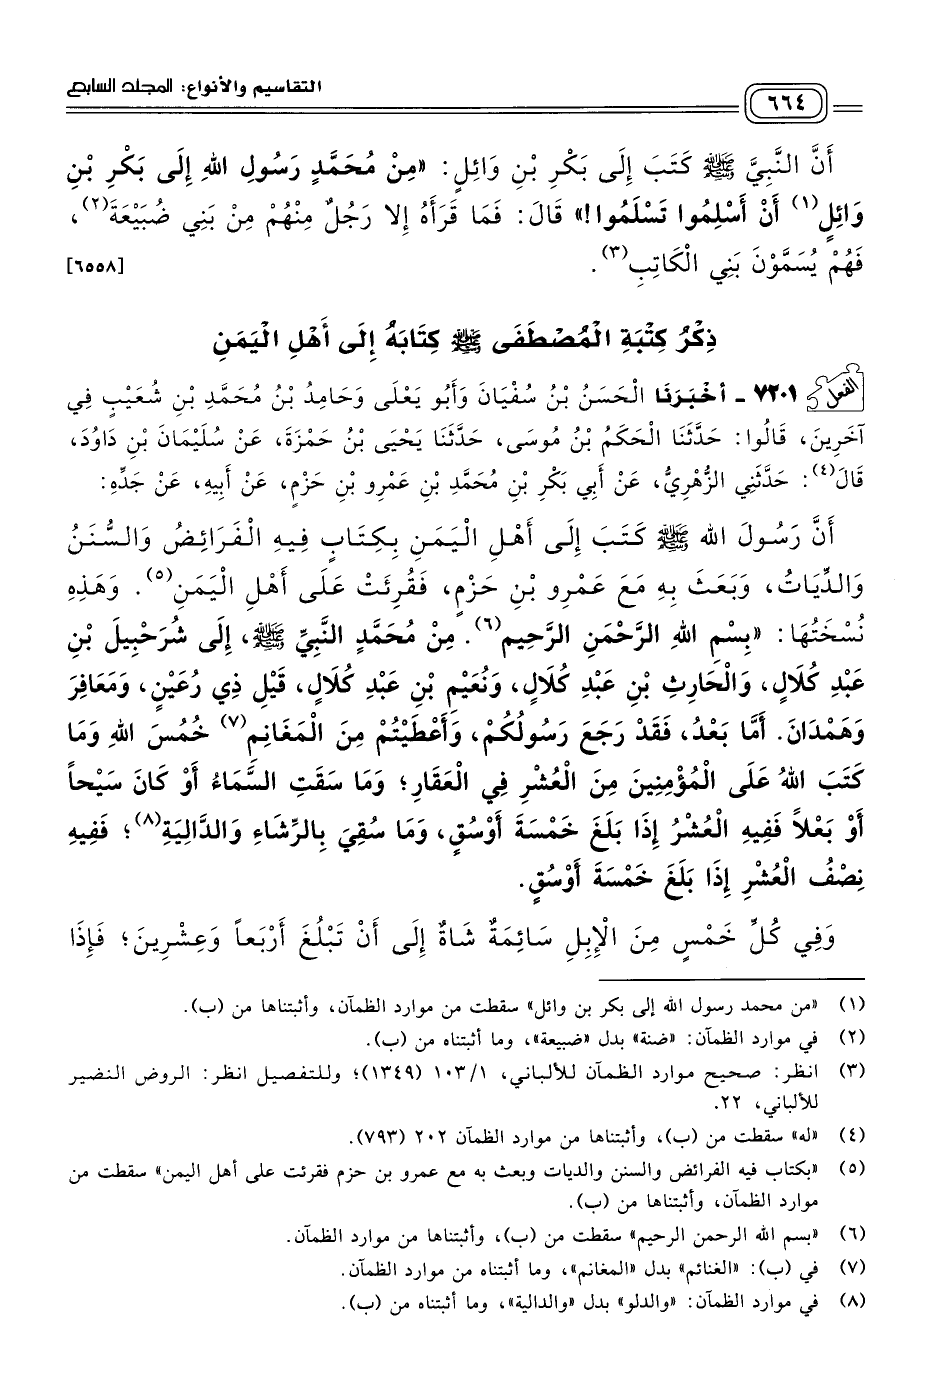 التقاسيم والأنواع: المجلد السابع
٦٦٤
أَنَّ النَّبِيَّ ﷺ كَتَبَ إِلَى بَكْرِ بْنِ وَائِلٍ: «مِنْ مُحَمَّدٍ رَسُولِ اللهِ إِلَى بَكْرِ بْنِ
وَائِلٍ(١) أَنْ أَسْلِمُوا تَسْلَمُوا!» قَالَ: فَمَا قَرَأَهُ إِلا رَجُلٌ مِنْهُمْ مِنْ بَنِي ضُبَيْعَةَ(٢)،
فَهُمْ يُسَمَّوْنَ بَنِي الْكَاتِبِ(٣). [٦٥٥٨]
ذِكْرُ كِتْبَةِ الْمُصْطَفَى ﷺ كِتَابَهُ إِلَى أَهْلِ الْيَمَنِ
الفعل ٧٢٠١ - أَخْبَرَنَا الْحَسَنُ بْنُ سُفْيَانَ وَأَبُو يَعْلَى وَحَامِدُ بْنُ مُحَمَّدِ بْنِ شُعَيْبٍ فِي
آخَرِينَ، قَالُوا: حَدَّثَنَا الْحَكَمُ بْنُ مُوسَى، حَدَّثَنَا يَحْيَى بْنُ حَمْزَةَ، عَنْ سُلَيْمَانَ بْنِ دَاوُدَ،
قَالَ(٤): حَدَّثَنِي الزُّهْرِيُّ، عَنْ أَبِي بَكْرِ بْنِ مُحَمَّدِ بْنِ عَمْرِو بْنِ حَزْمٍ، عَنْ أَبِيهِ، عَنْ جَدِّهِ:
أَنَّ رَسُولَ اللهِ ﷺ كَتَبَ إِلَى أَهْلِ الْيَمَنِ بِكِتَابٍ فِيهِ الْفَرَائِضُ وَالسُّنَنُ
وَالدِّيَاتُ، وَبَعَثَ بِهِ مَعَ عَمْرِو بْنِ حَزْمٍ، فَقُرِئَتْ عَلَى أَهْلِ الْيَمَنِ(٥). وَهَذِهِ
نُسْخَتُهَا: «بِسْمِ اللهِ الرَّحْمَنِ الرَّحِيمِ(٦). مِنْ مُحَمَّدٍ النَّبِيِّ ﷺ، إِلَى شُرَحْبِيلَ بْنِ
عَبْدِ كُلَالٍ، وَالْحَارِثِ بْنِ عَبْدِ كُلَالٍ، وَنُعَيْمِ بْنِ عَبْدِ كُلَالٍ، قَيْلِ ذِي رُعَيْنٍ، وَمَعَافِرَ
وَهَمْدَانَ. أَمَّا بَعْدُ، فَقَدْ رَجَعَ رَسُولُكُمْ، وَأَعْطَيْتُمْ مِنَ الْمَغَانِمِ(٧) خُمُسَ اللهِ وَمَا
كَتَبَ اللهُ عَلَى الْمُؤْمِنِينَ مِنَ الْعُشْرِ فِي الْعَقَارِ؛ وَمَا سَقَتِ السَّمَاءُ أَوْ كَانَ سَيْحاً
أَوْ بَعْلاً فَفِيهِ الْعُشْرُ إِذَا بَلَغَ خَمْسَةَ أَوْسُقٍ، وَمَا سُقِيَ بِالرِّشَاءِ وَالدَّالِيَةِ(٨)؛ فَفِيهِ
نِصْفُ الْعُشْرِ إِذَا بَلَغَ خَمْسَةَ أَوْسُقٍ.
وَفِي كُلِّ خَمْسٍ مِنَ الْإِبِلِ سَائِمَةٌ شَاةٌ إِلَى أَنْ تَبْلُغَ أَرْبَعاً وَعِشْرِينَ؛ فَإِذَا
(١) «من محمد رسول الله إلى بكر بن وائل» سقطت من موارد الظمآن، وأثبتناها من (ب).
(٢) في موارد الظمآن: «ضنة» بدل «ضبيعة»، وما أثبتناه من (ب).
(٣) انظر: صحيح موارد الظمآن للألباني، ١٠٣/١ (١٣٤٩)؛ وللتفصيل انظر: الروض النضير
للألباني، ٢٢.
(٤) «له» سقطت من (ب)، وأثبتناها من موارد الظمآن ٢٠٢ (٧٩٣).
(٥) «بكتاب فيه الفرائض والسنن والديات وبعث به مع عمرو بن حزم فقرئت على أهل اليمن» سقطت من
موارد الظمآن، وأثبتناها من (ب).
(٦) «بسم الله الرحمن الرحيم» سقطت من (ب)، وأثبتناها من موارد الظمآن.
(٧) في (ب): «الغنائم» بدل «المغانم»، وما أثبتناه من موارد الظمآن.
(٨) في موارد الظمآن: «والدلو» بدل «والدالية»، وما أثبتناه من (ب).